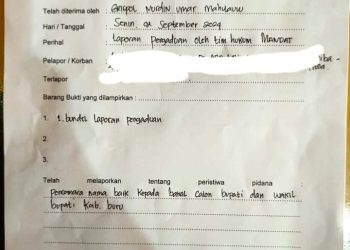 Telah diterima oleh : Bripol Nurdin Umar Mahulauw
Hari / Tanggal : Senin, 02 September 2024
Perihal : Laporan pengaduan oleh tim hukum MANDAT
Pelapor / Korban
Terlapor
Barang Bukti yang dilampirkan :
1. 1. bundel laporan pengaduan
2.
3.
Telah melaporkan tentang peristiwa pidana :
nama baik kepada bakal calon bupati dan wakil
bupati Kab. buru